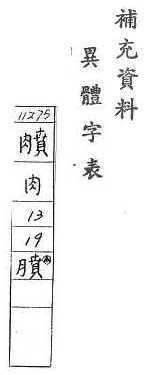 補充資料
異體字表
11275
肉賁
肉
13
19
月賁